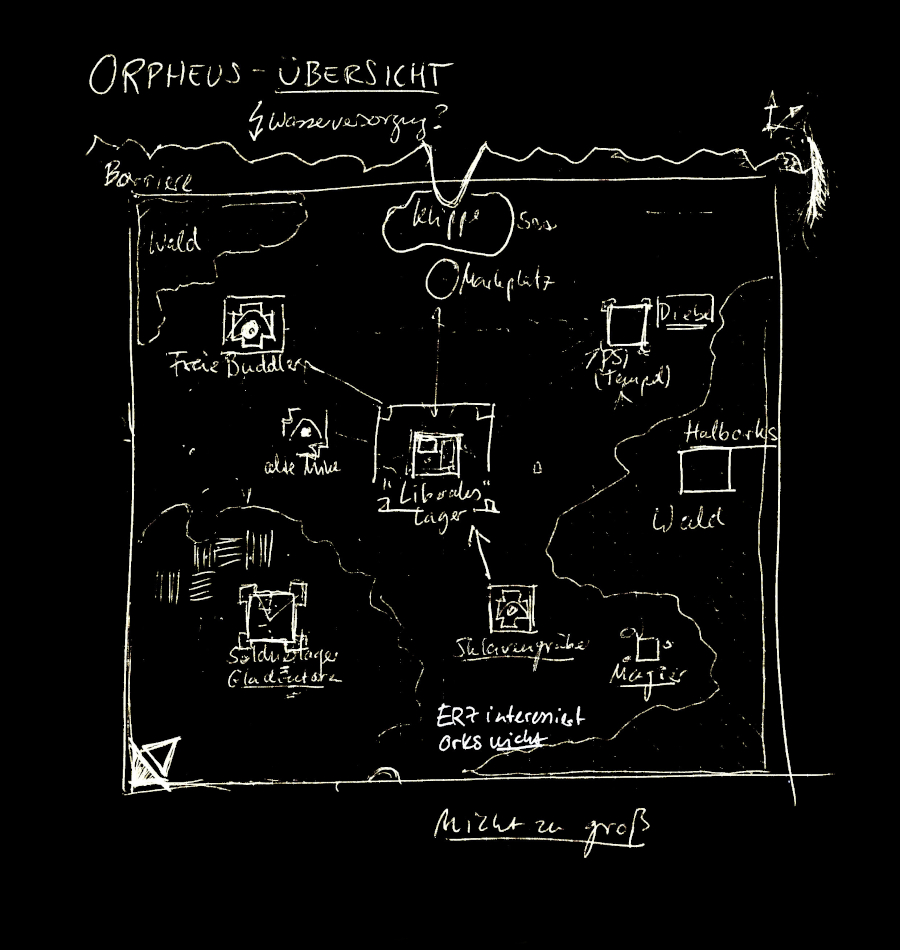 ORPHEUS - ÜBERSICHT
Wasserversorgug?
Barriere
Wald
Klippe
See
Markplatz
Diebe
Freie Buddler
PSI
(Tempel)
Halborks
alte Mine
"Liberales"
Lager
Wald
Söldnerlager
Gladiatoren
Sklavengrube
Magier
ERZ interessiert
Orks nicht
Nicht zu groß